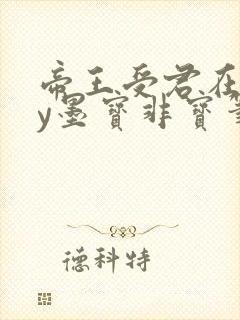 帝王受君在
y墨宝非宝
德科特